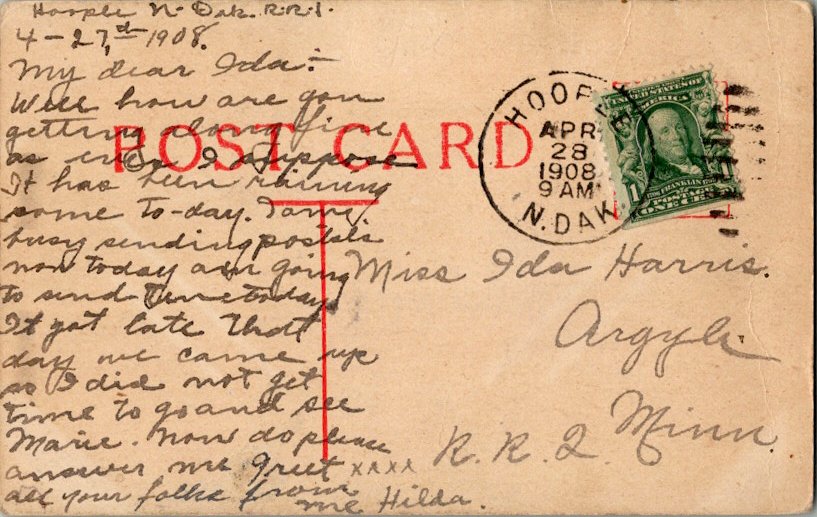 Hoople N. Dak. R.R.1.
4-27th 1908.
My dear Ida:-
Well how are you
getting along fine
as ever I suppose
It has been raining
some to-day. I am
busy sending postals
now today am going
to send nine today
It got late that
day we came up
so I did not get
time to go and see
Marie. Now do please
answer me Greet xxxx
all your folks from
me Hilda.
POST CARD
HOOPLE
APR
28
1908
9 AM
N. DAK.
UNITED STATES OF
AMERICA
FRANKLIN
1 POSTAGE 1
ONE CENT
Miss Ida Harris.
Argyle
Minn
R. R. 2.